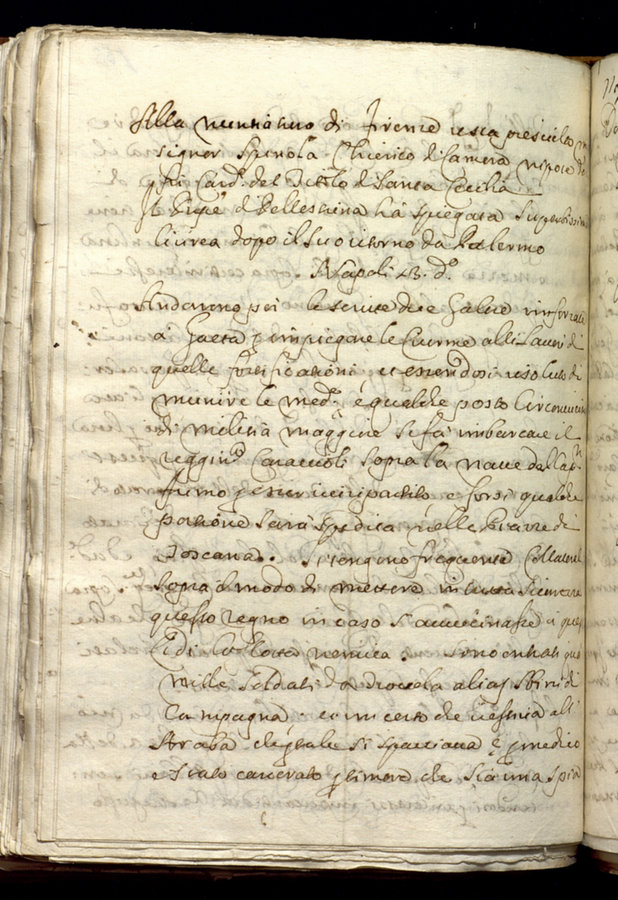 Alla nuntiatura di Firenze resta prescielto m
signor Spinola Chierico di Camera nipote de
fù Card. del Titolo di Santa Cecilia
Il Prpe di Pellestrina hà spiegata superbissima
liurea dopo il suo ritorno da Palermo
Napoli 13. do
Andarono poi le scritte due Galere
à Gaeta p impiegare le Ciurme alli lauori di
quelle fortificationi et essendosi risoluto di
munire le med. e qualche posto Circonuicin
di militia maggiore si fà imbarcare il
reggimo Caraccioli sopra la naue
p esser e forsi qualche
portione sarà spedita nelle Piazze di
Toscana. Si tengono frequente Collateral
sopra il modo di mettere in tutta sicurezza
questo regno in caso si auuicinasse à ques
lidi la flotta nemica. Sono entrati qua
mille soldati da alias sbirri di
Campagna et un certo che uestiua all
Araba che quale si spacciaua p medico
è stato carcerato p timore che sia una spia